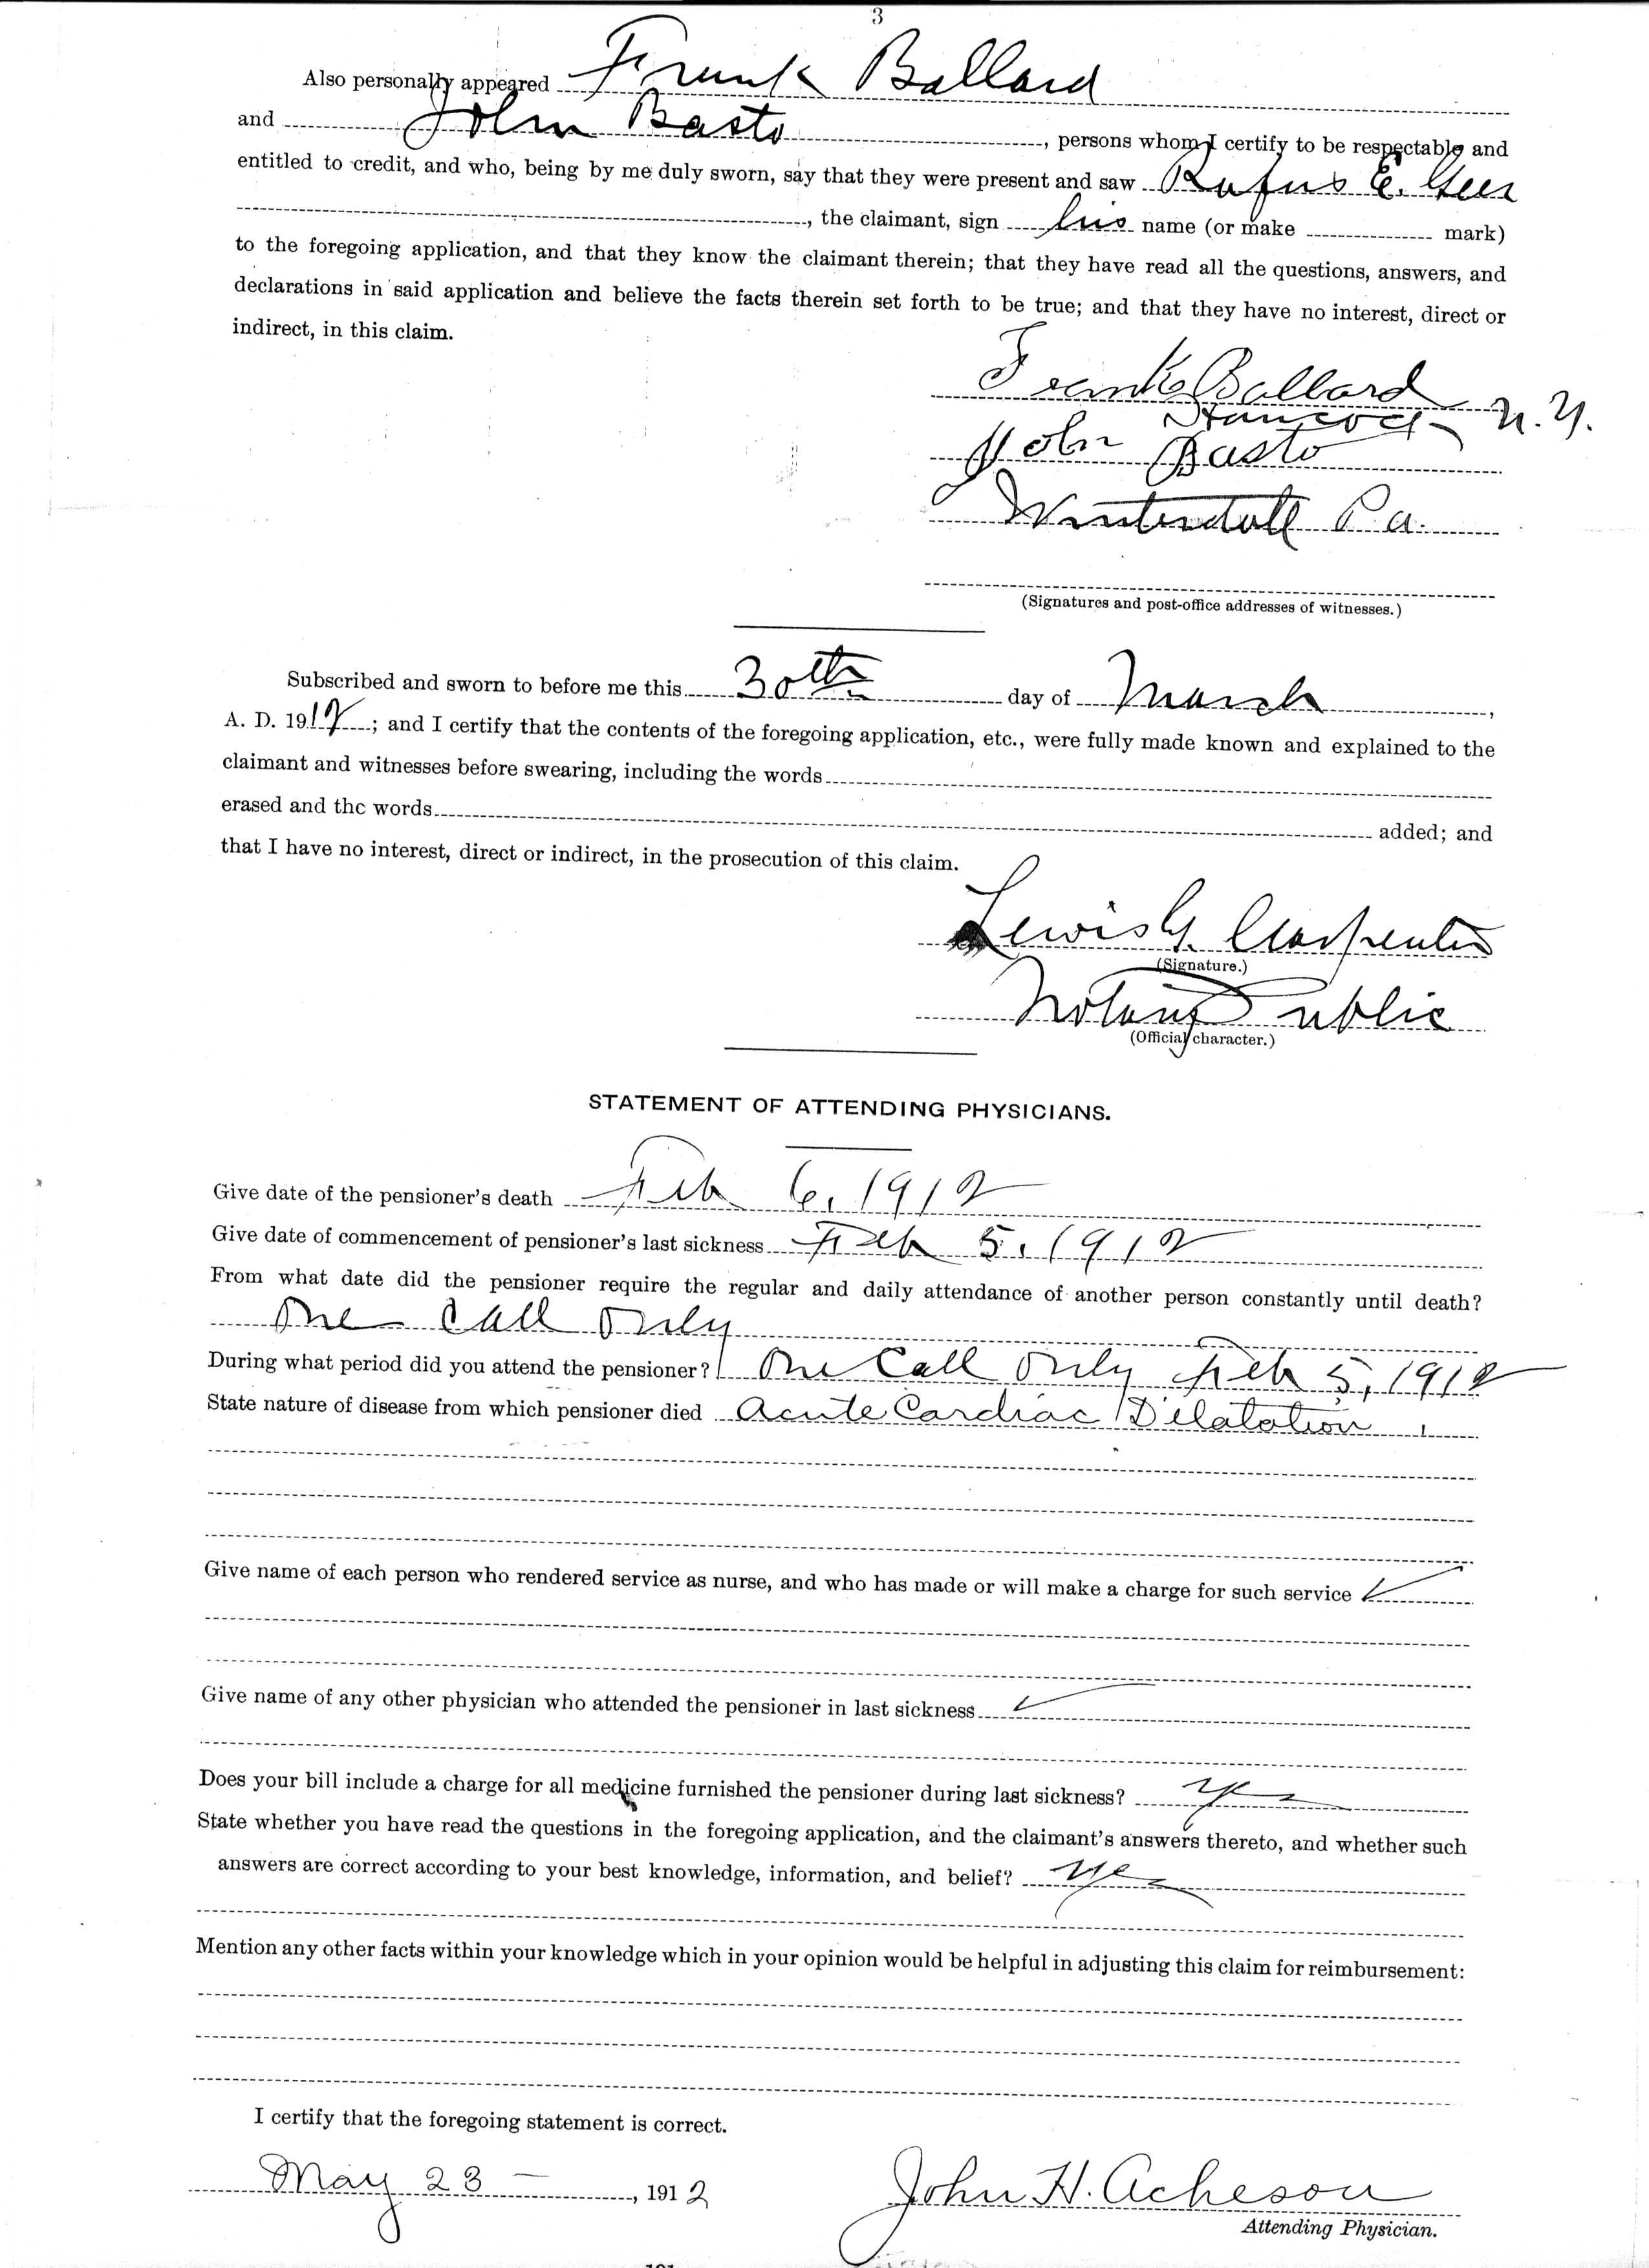 3
Also personally appeared Frank Ballard
and John Basto, persons whom I certify to be respectable and
entitled to credit, and who, being by me duly sworn, say that they were present and saw Rufus E. Geer
, the claimant, sign his name (or make mark)
to the foregoing application, and that they know the claimant therein; that they have read all the questions, answers, and
declarations in said application and believe the facts therein set forth to be true; and that they have no interest, direct or
indirect, in this claim.
Frank Ballard
Hancock N.Y.
John Basto
Winterdale Pa.
(Signatures and post-office addresses of witnesses.)
Subscribed and sworn to before me this 30th day of March,
A. D. 1912; and I certify that the contents of the foregoing application, etc., were fully made known and explained to the
claimant and witnesses before swearing, including the words
erased and the words added; and
that I have no interest, direct or indirect, in the prosecution of this claim.
Lewis G. Carpenter
(Signature.)
Notary Public
(Official character.)
STATEMENT OF ATTENDING PHYSICIANS.
Give date of the pensioner's death Feb 6, 1912
Give date of commencement of pensioner's last sickness Feb 5, 1912
From what date did the pensioner require the regular and daily attendance of another person constantly until death?
One Call Only
During what period did you attend the pensioner? One Call Only Feb 5, 1912
State nature of disease from which pensioner died Acute Cardiac Dilatation
Give name of each person who rendered service as nurse, and who has made or will make a charge for such service
Give name of any other physician who attended the pensioner in last sickness
Does your bill include a charge for all medicine furnished the pensioner during last sickness? yes
State whether you have read the questions in the foregoing application, and the claimant's answers thereto, and whether such
answers are correct according to your best knowledge, information, and belief? yes
Mention any other facts within your knowledge which in your opinion would be helpful in adjusting this claim for reimbursement:
I certify that the foregoing statement is correct.
May 23, 1912
John H. Acheson
Attending Physician.